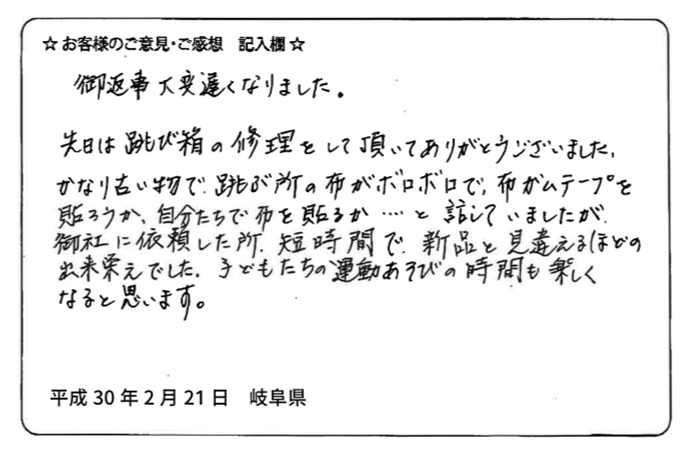 ☆お客様のご意見・ご感想 記入欄☆
御返事大変遅くなりました。
先日は跳び箱の修理をして頂いてありがとうございました。
かなり古い物で、跳ぶ所の布がボロボロで、布ガムテープを
貼ろうか、自分たちで布を貼るか…と話していましたが、
御社に依頼した所、短時間で、新品と見違えるほどの
出来栄えでした。子どもたちの運動あそびの時間も楽しく
なると思います。
平成30年2月21日 岐阜県